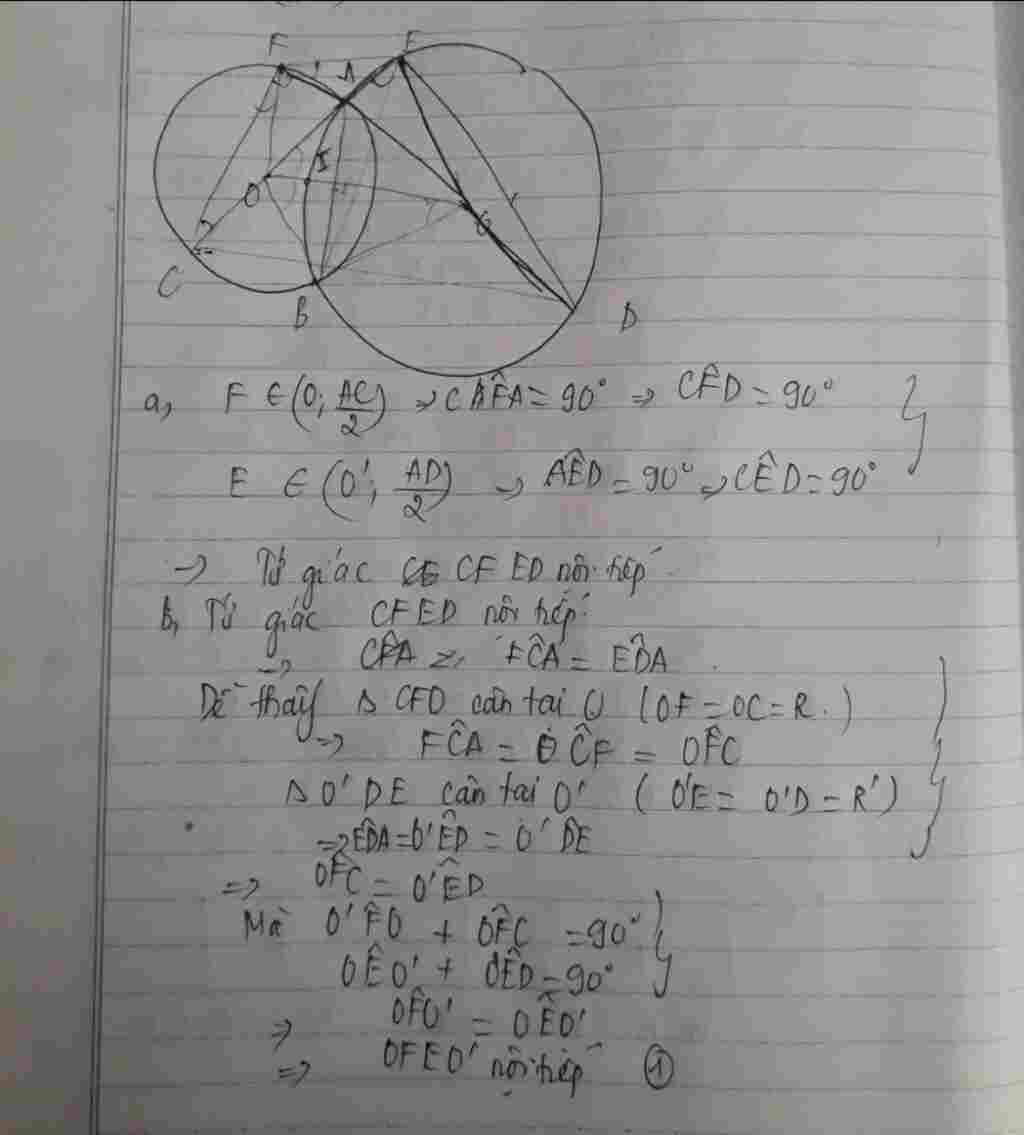 F
E
A
I
O
C
B
D
a, F ∈ (O; AC/2) → CÂF̂A = 90° ⇒ CF̂D = 90°
E ∈ (O'; AD/2) → AÊD = 90° → CÊD = 90°
→ Tứ giác CFED nội tiếp
b, Tứ giác CFED nội tiếp
⇒ FĈA = ED̂A
Dễ thấy Δ CFO cân tại O (OF = OC = R.)
⇒ FĈA = OĈF = OF̂C
Δ O'DE cân tại O' (O'E = O'D = R')
⇒ ED̂A = O'ÊD = O'D̂E
⇒ OF̂C = O'ÊD
Mà O'F̂O + OF̂C = 90°
OÊO' + OÊD = 90°
⇒ OF̂O' = OÊO'
⇒ OFEO' nội tiếp ①